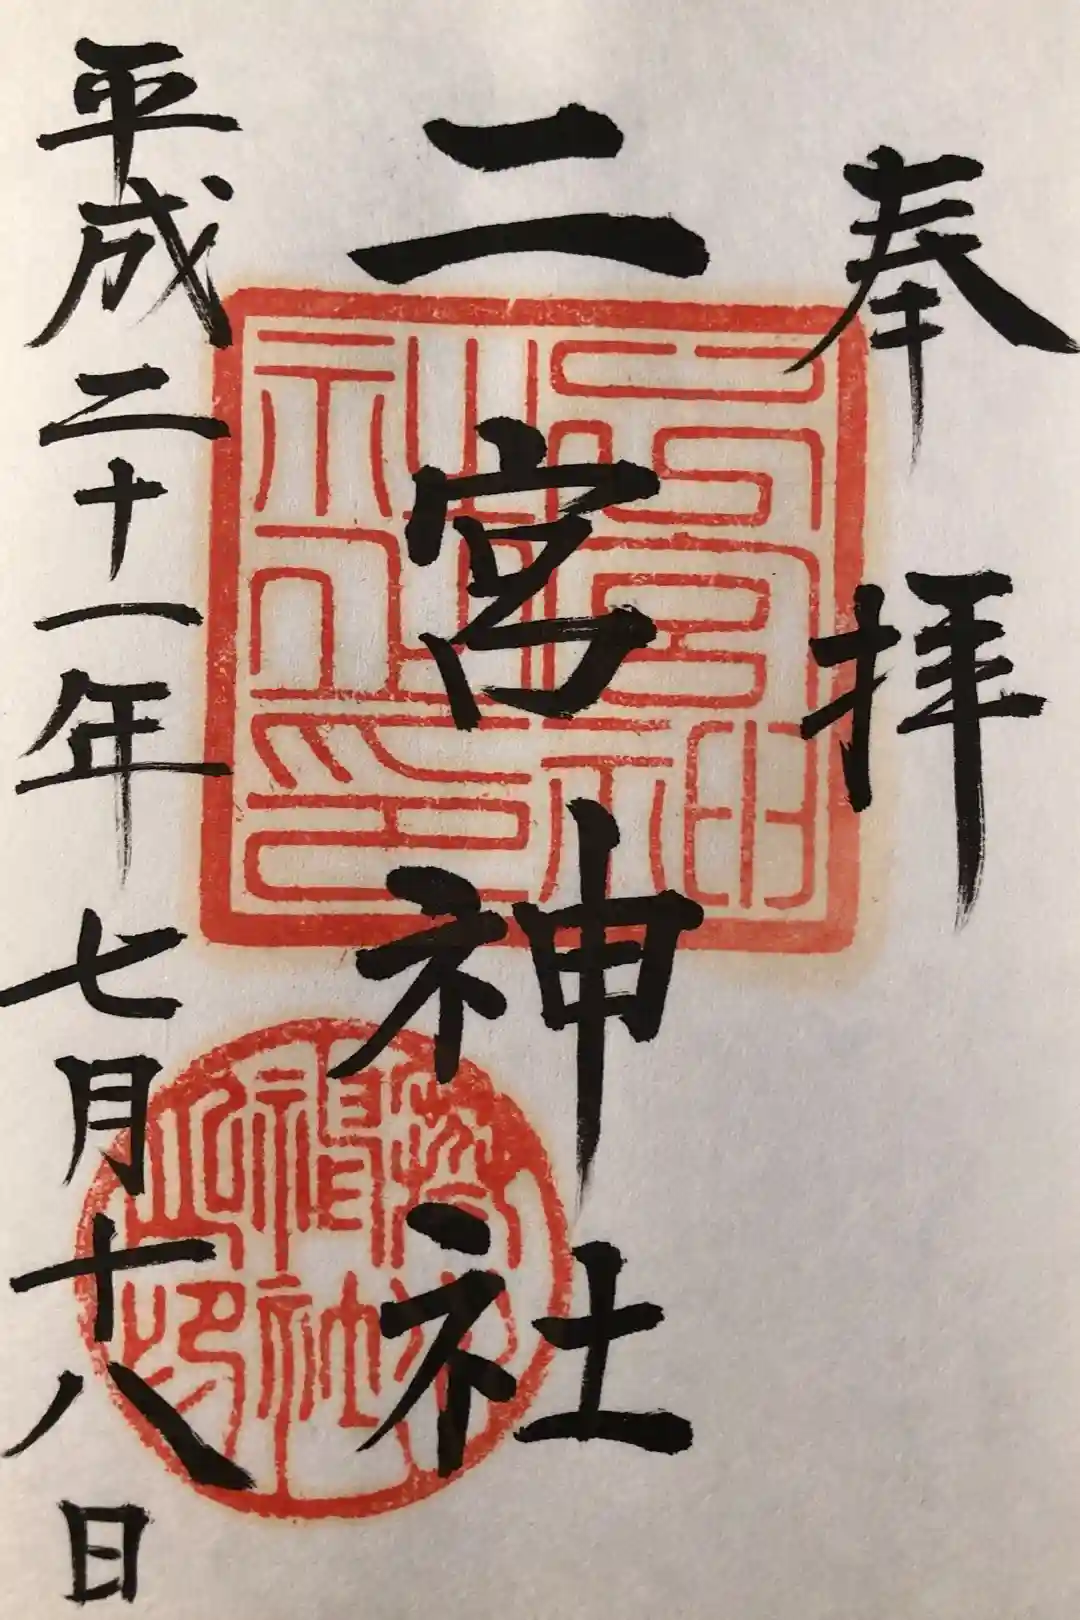 奉拝
二宮神社
平成二十一年七月十八日
二宮神社之印